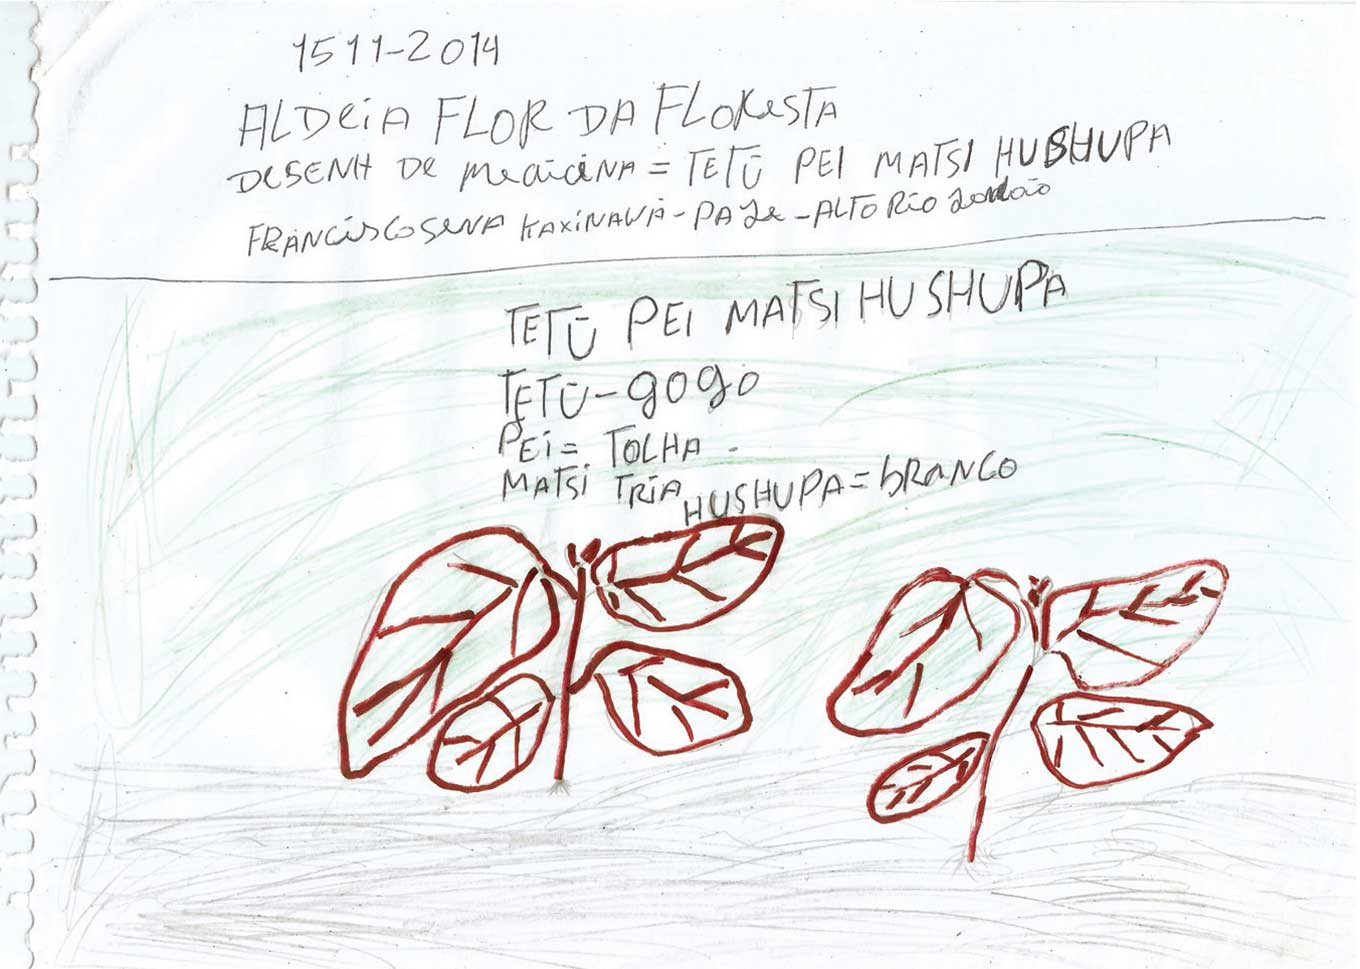 1511-2014
ALDEiA FLOR DA FLORESTA
DESENH DE MEDICINA = TETŨ PEI MATSI HUSHUPA
FRANCISCO SENA KAXINAWA - PAJE - ALTO RiO JORDÃO
TETŨ PEI MATSI HUSHUPA
TETŨ - gogo
PEi = TOLHA -
MATSi TRiA HUSHUPA = bRANCO